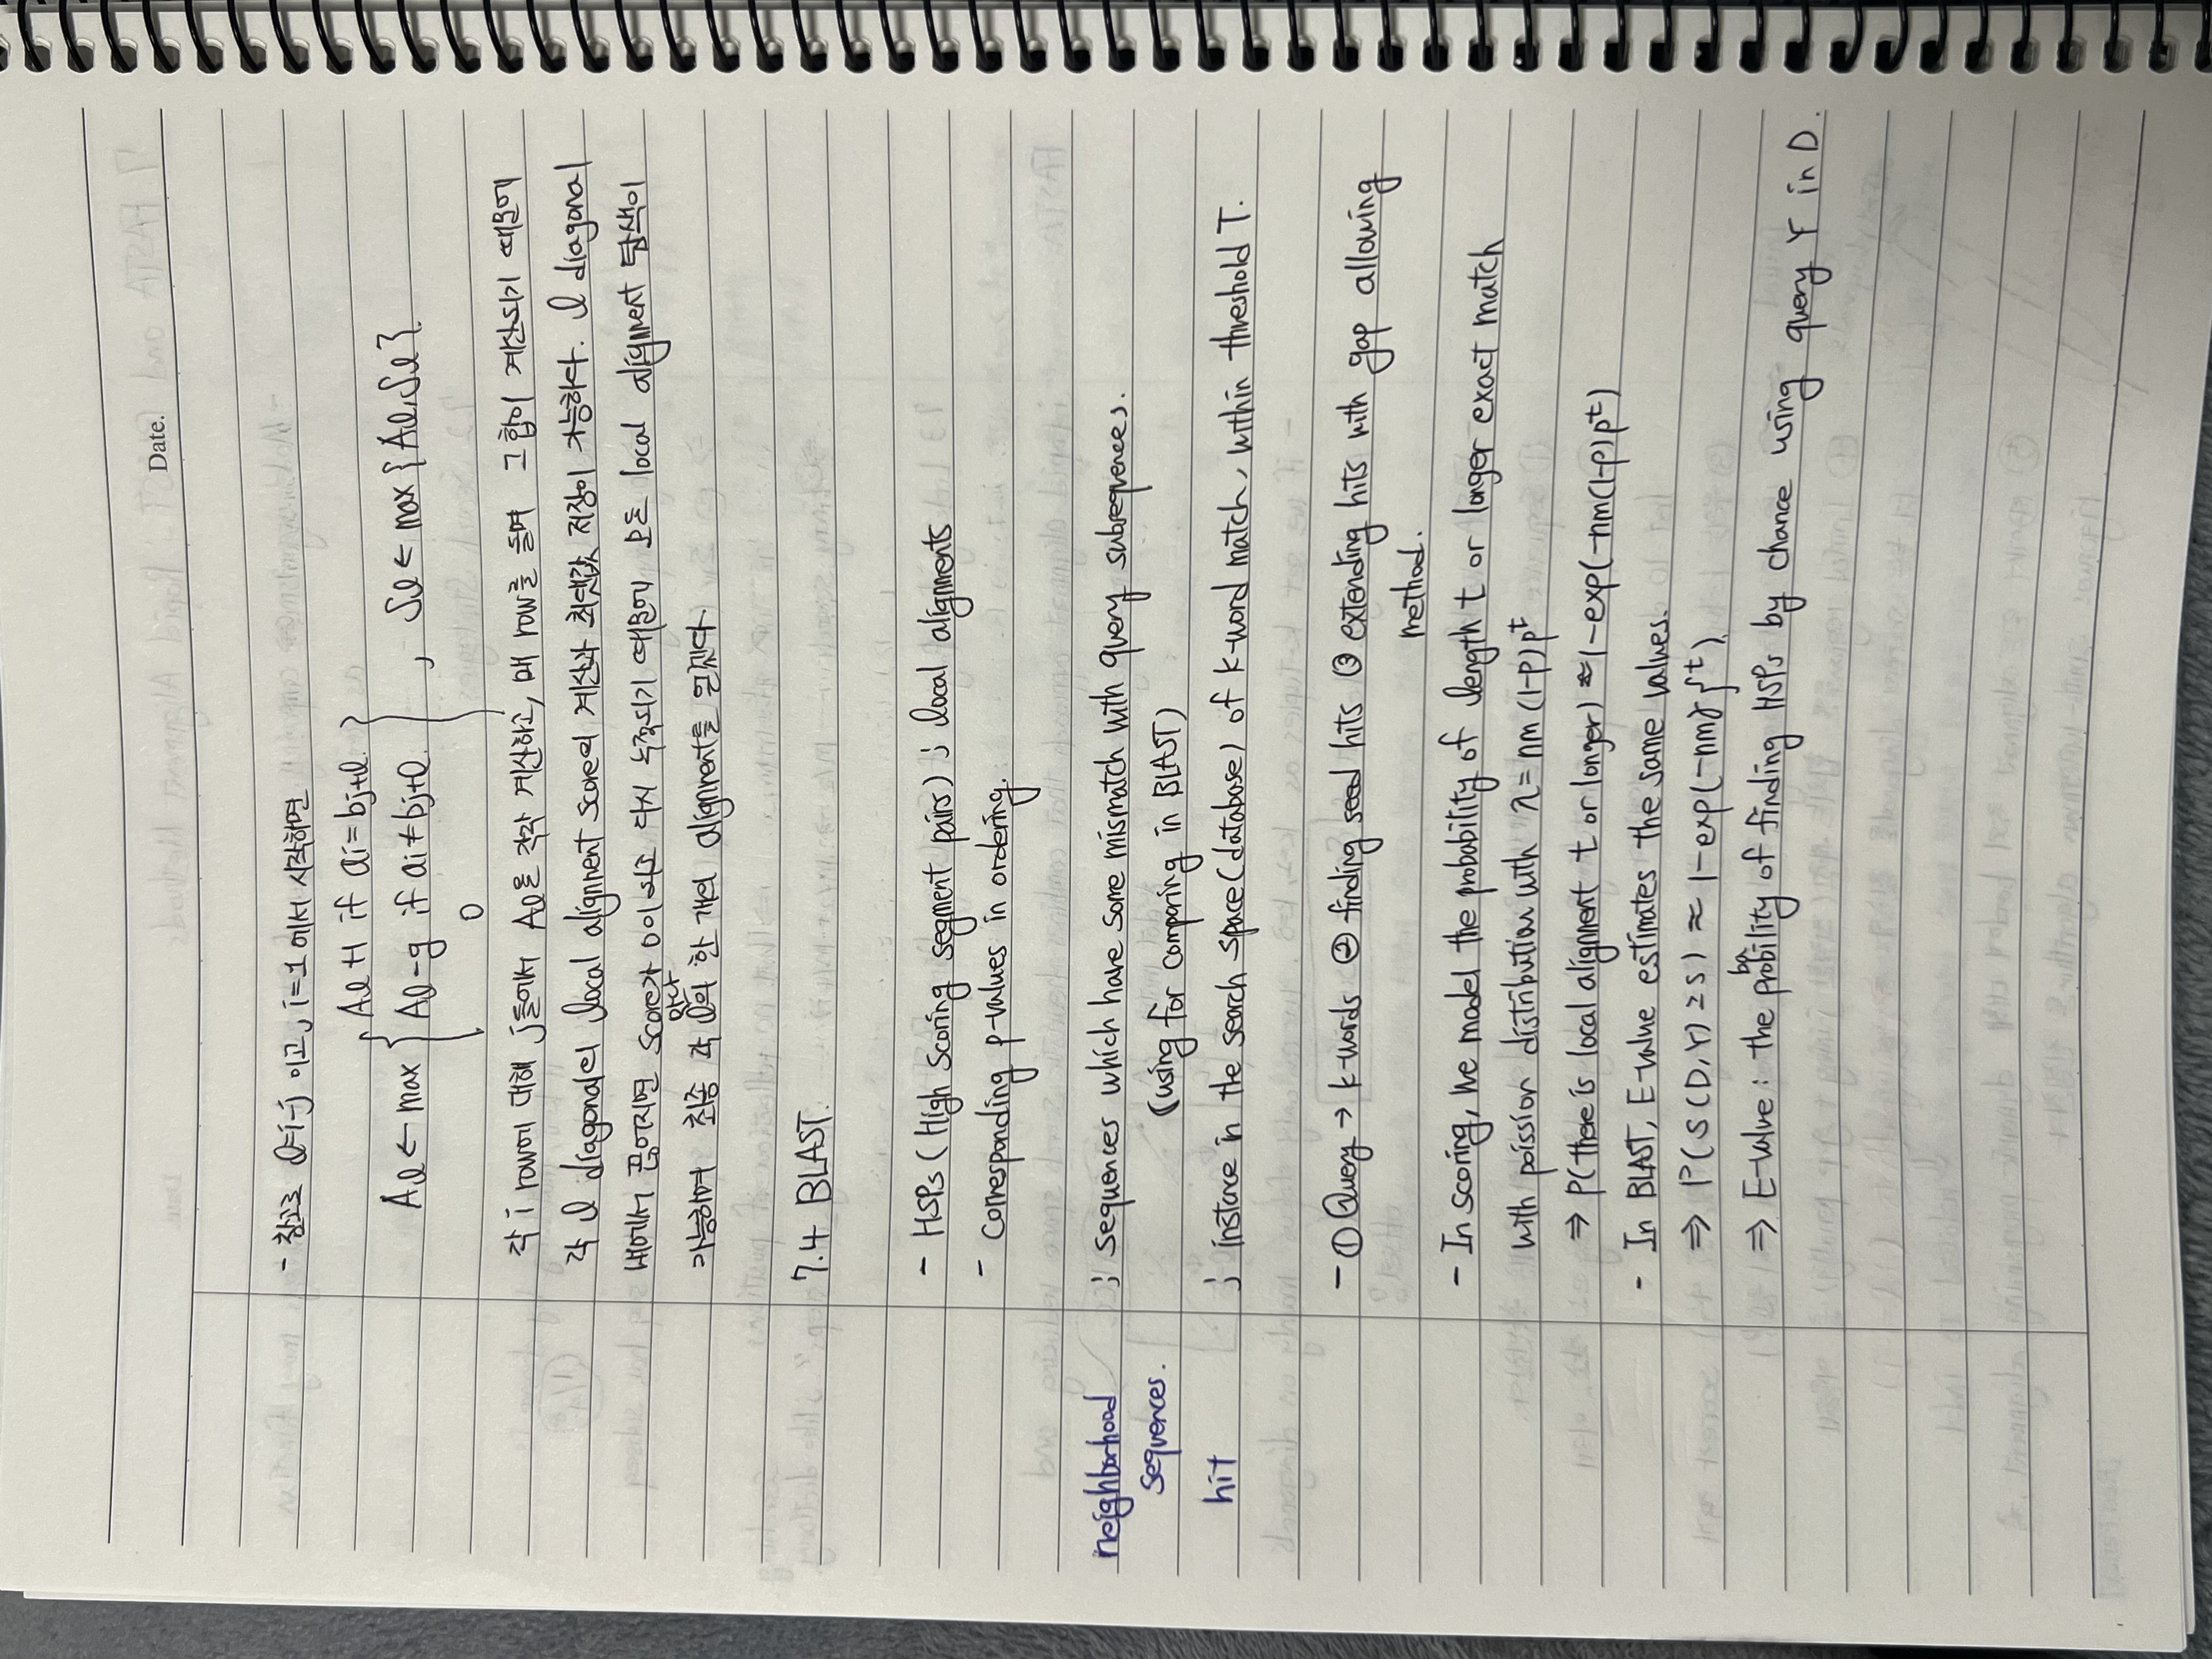 Date.
- 참고로 l=i-j 이고, i=1 에서 시작하면
Al ← max { Al+1 if ai=bj+l. } , Sl ← max{Al, Sl}
Al-g if ai≠bj+l.
0
각 i row에 대해 j들에서 Al을 각각 계산하고, 매 row를 돌며 그 합이 계산되기 때문에
각 l diagonal의 local alignment score의 계산과 최댓값 저장이 가능하다. l diagonal
내에서 끊어지면 score가 0이 되고 다시 누적되기 때문에 모든 local alignment 탐색이
가능하며 최종 각 l마다의 한 개의 alignment를 얻는다
7.4 BLAST.
- HSPs (High scoring segment pairs) ; local alignments
- Corresponding p-values in ordering.
neighborhood ; sequences which have some mismatch with query subsequences.
sequences. (using for comparing in BLAST)
hit ; instance in the search space(database) of k-word match, within threshold T.
- ① Query → k-words ② finding seed hits ③ extending hits with gap allowing
method.
- In scoring, we model the probability of length t or longer exact match
with poission distribution with λ = nm(1-p)p^t
⇒ P(there is local alignment t or longer) ≈ 1-exp(-nm(1-p)p^t)
- In BLAST, E-value estimates the same values.
⇒ P(S(D,Y) ≥ s) ≈ 1-exp(-nmγξ^t).
⇒ E-value : the probability of finding HSPs by chance using query Y in D.